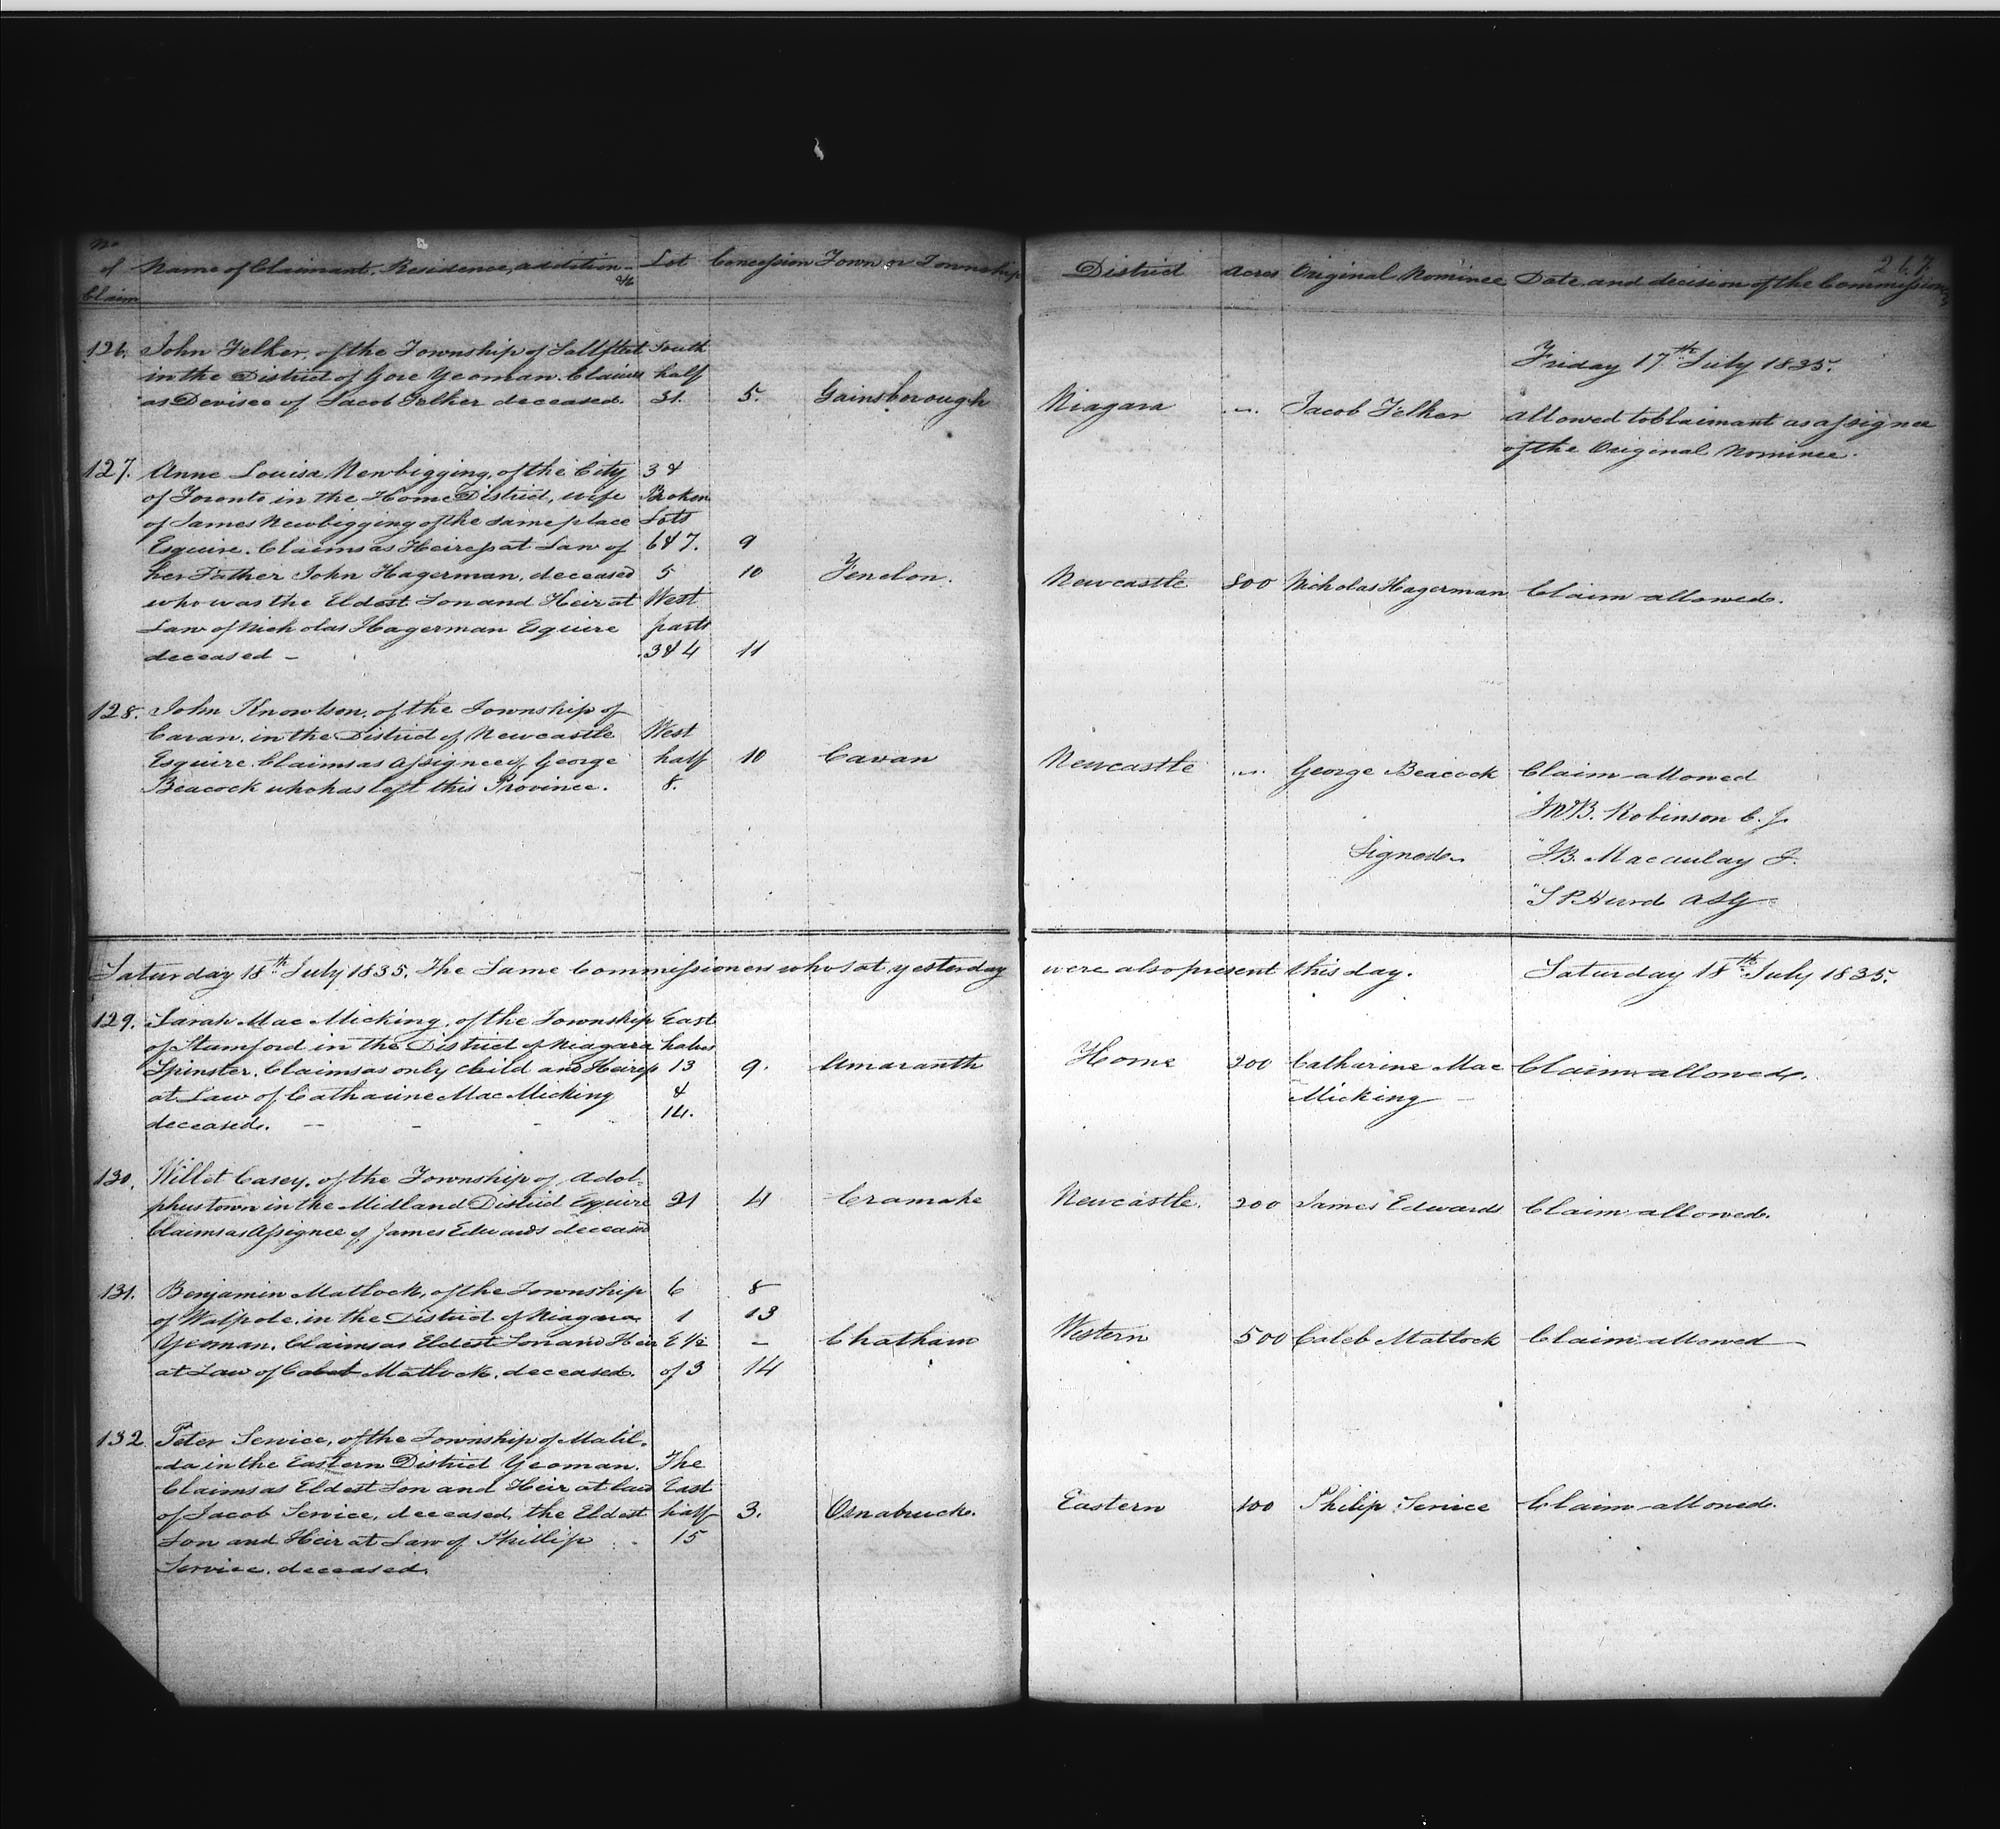 No
of Name of Claimant, Residence, addition Lot Concession Town or Township
Claim &c
126. John Felker, of the Township of Saltfleet South
in the District of Gore Yeoman. Claims half
as Devisee of Jacob Felker deceased. 31. 5. Gainsborough
127. Anne Louisa Newbigging, of the City 3 &
of Toronto in the Home District, wife Broken
of James Newbigging of the same place Lots
Esquire. Claims as Heiress at Law of 6 & 7. 9
her Father John Hagerman, deceased 5 10 Fenelon.
who was the Eldest Son and Heir at West
Law of Nicholas Hagerman Esquire parts
deceased - 3 & 4 11
128. John Knowlson, of the Township of
Cavan, in the District of Newcastle West
Esquire. Claims as Assignee of George half 10 Cavan
Beacock who has left this Province. 8.
Saturday 18th July 1835. The Same Commissioners who sat yesterday
129. Sarah Mac Micking, of the Township East
of Stamford in the District of Niagara halves
Spinster. Claims as only child and Heiress 13 9. Amaranth
at Law of Catharine Mac Micking &
deceased. - - - - 14.
130. Willet Casey, of the Township of Adol-
phustown in the Midland District Esquire 21 4 Cramahe
Claims as Assignee of James Edwards deceased
131. Benjamin Matlock, of the Township 6 8
of Walpole, in the District of Niagara 1 13
Yeoman. Claims as Eldest Son and Heir E 1/2 - Chatham
at Law of Caleb Matlock, deceased. of 3 14
132. Peter Service, of the Township of Matil-
da in the Eastern District Yeoman. The
Claims as Eldest Son and Heir at Law East
of Jacob Service, deceased, the Eldest half 3. Osnabruck.
Son and Heir at Law of Phillip 15
Service, deceased.
267.
District Acres Original Nominee Date and decision of the Commissioners
Friday 17th July 1835.
Niagara " Jacob Felker allowed to Claimant as assignee
of the Original Nominee.
Newcastle 800 Nicholas Hagerman Claim allowed.
Newcastle " George Beacock Claim allowed
Jno B. Robinson C. J.
Signed " J. B. Macaulay J.
" S P Hurd ASG
were also present this day. Saturday 18th July 1835.
Home 200 Catharine Mac Claim allowed.
Micking -
Newcastle. 200 James Edwards Claim allowed.
Western 500 Caleb Matlock Claim allowed
Eastern 100 Philip Service Claim allowed.